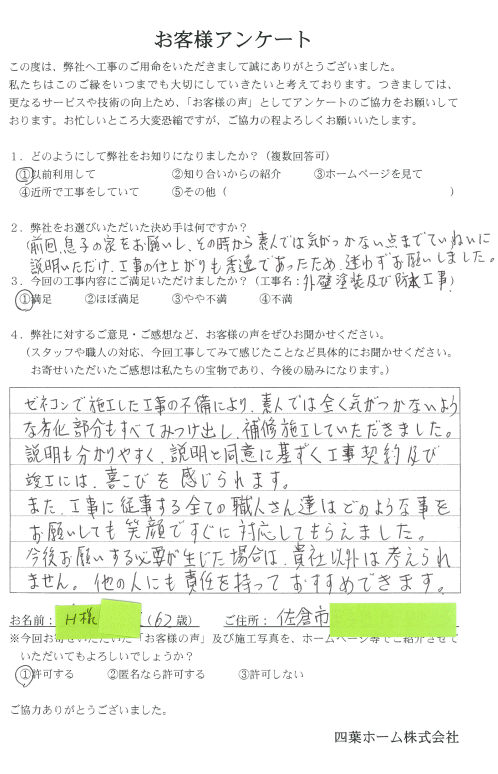 お客様アンケート
この度は、弊社へ工事のご用命をいただきまして誠にありがとうございました。
私たちはこのご縁をいつまでも大切にしていきたいと考えております。つきましては、
更なるサービスや技術の向上ため、「お客様の声」としてアンケートのご協力をお願いして
おります。お忙しいところ大変恐縮ですが、ご協力の程よろしくお願いいたします。
1．どのようにして弊社をお知りになりましたか？（複数回答可）
①以前利用して ②知り合いからの紹介 ③ホームページを見て
④近所で工事をしていて ⑤その他（ ）
2．弊社をお選びいただいた決め手は何ですか？
（前回、息子の家をお願いし、その時から素人では気がつかない点までていねいに
説明いただけ、工事の仕上がりも秀逸であったため、迷わずお願いしました。
3．今回の工事内容にご満足いただけましたか？（工事名：外壁塗装及び防水工事）
①満足 ②ほぼ満足 ③やや不満 ④不満
4．弊社に対するご意見・ご感想など、お客様の声をぜひお聞かせください。
（スタッフや職人の対応、今回工事してみて感じたことなど具体的にお聞かせください。
お寄せいただいたご感想は私たちの宝物であり、今後の励みになります。）
ゼネコンで施工した工事の不備により、素人では全く気がつかないよう
な劣化部分もすべてみつけ出し、補修施工していただきました。
説明も分かりやすく、説明と同意に基ずく工事契約及び
竣工には、喜こびを感じられます。
また、工事に従事する全ての職人さん達はどのような事を
お願いしても笑顔ですぐに対応してもらえました。
今後お願いする必要が生じた場合は、貴社以外は考えられ
ません。他の人にも責任を持っておすすめできます。
お名前：H様（62歳） ご住所：佐倉市
※今回お寄せいただいた「お客様の声」及び施工写真を、ホームページ等でご紹介させて
いただいてもよろしいでしょうか？
①許可する ②匿名なら許可する ③許可しない
ご協力ありがとうございました。
四葉ホーム株式会社